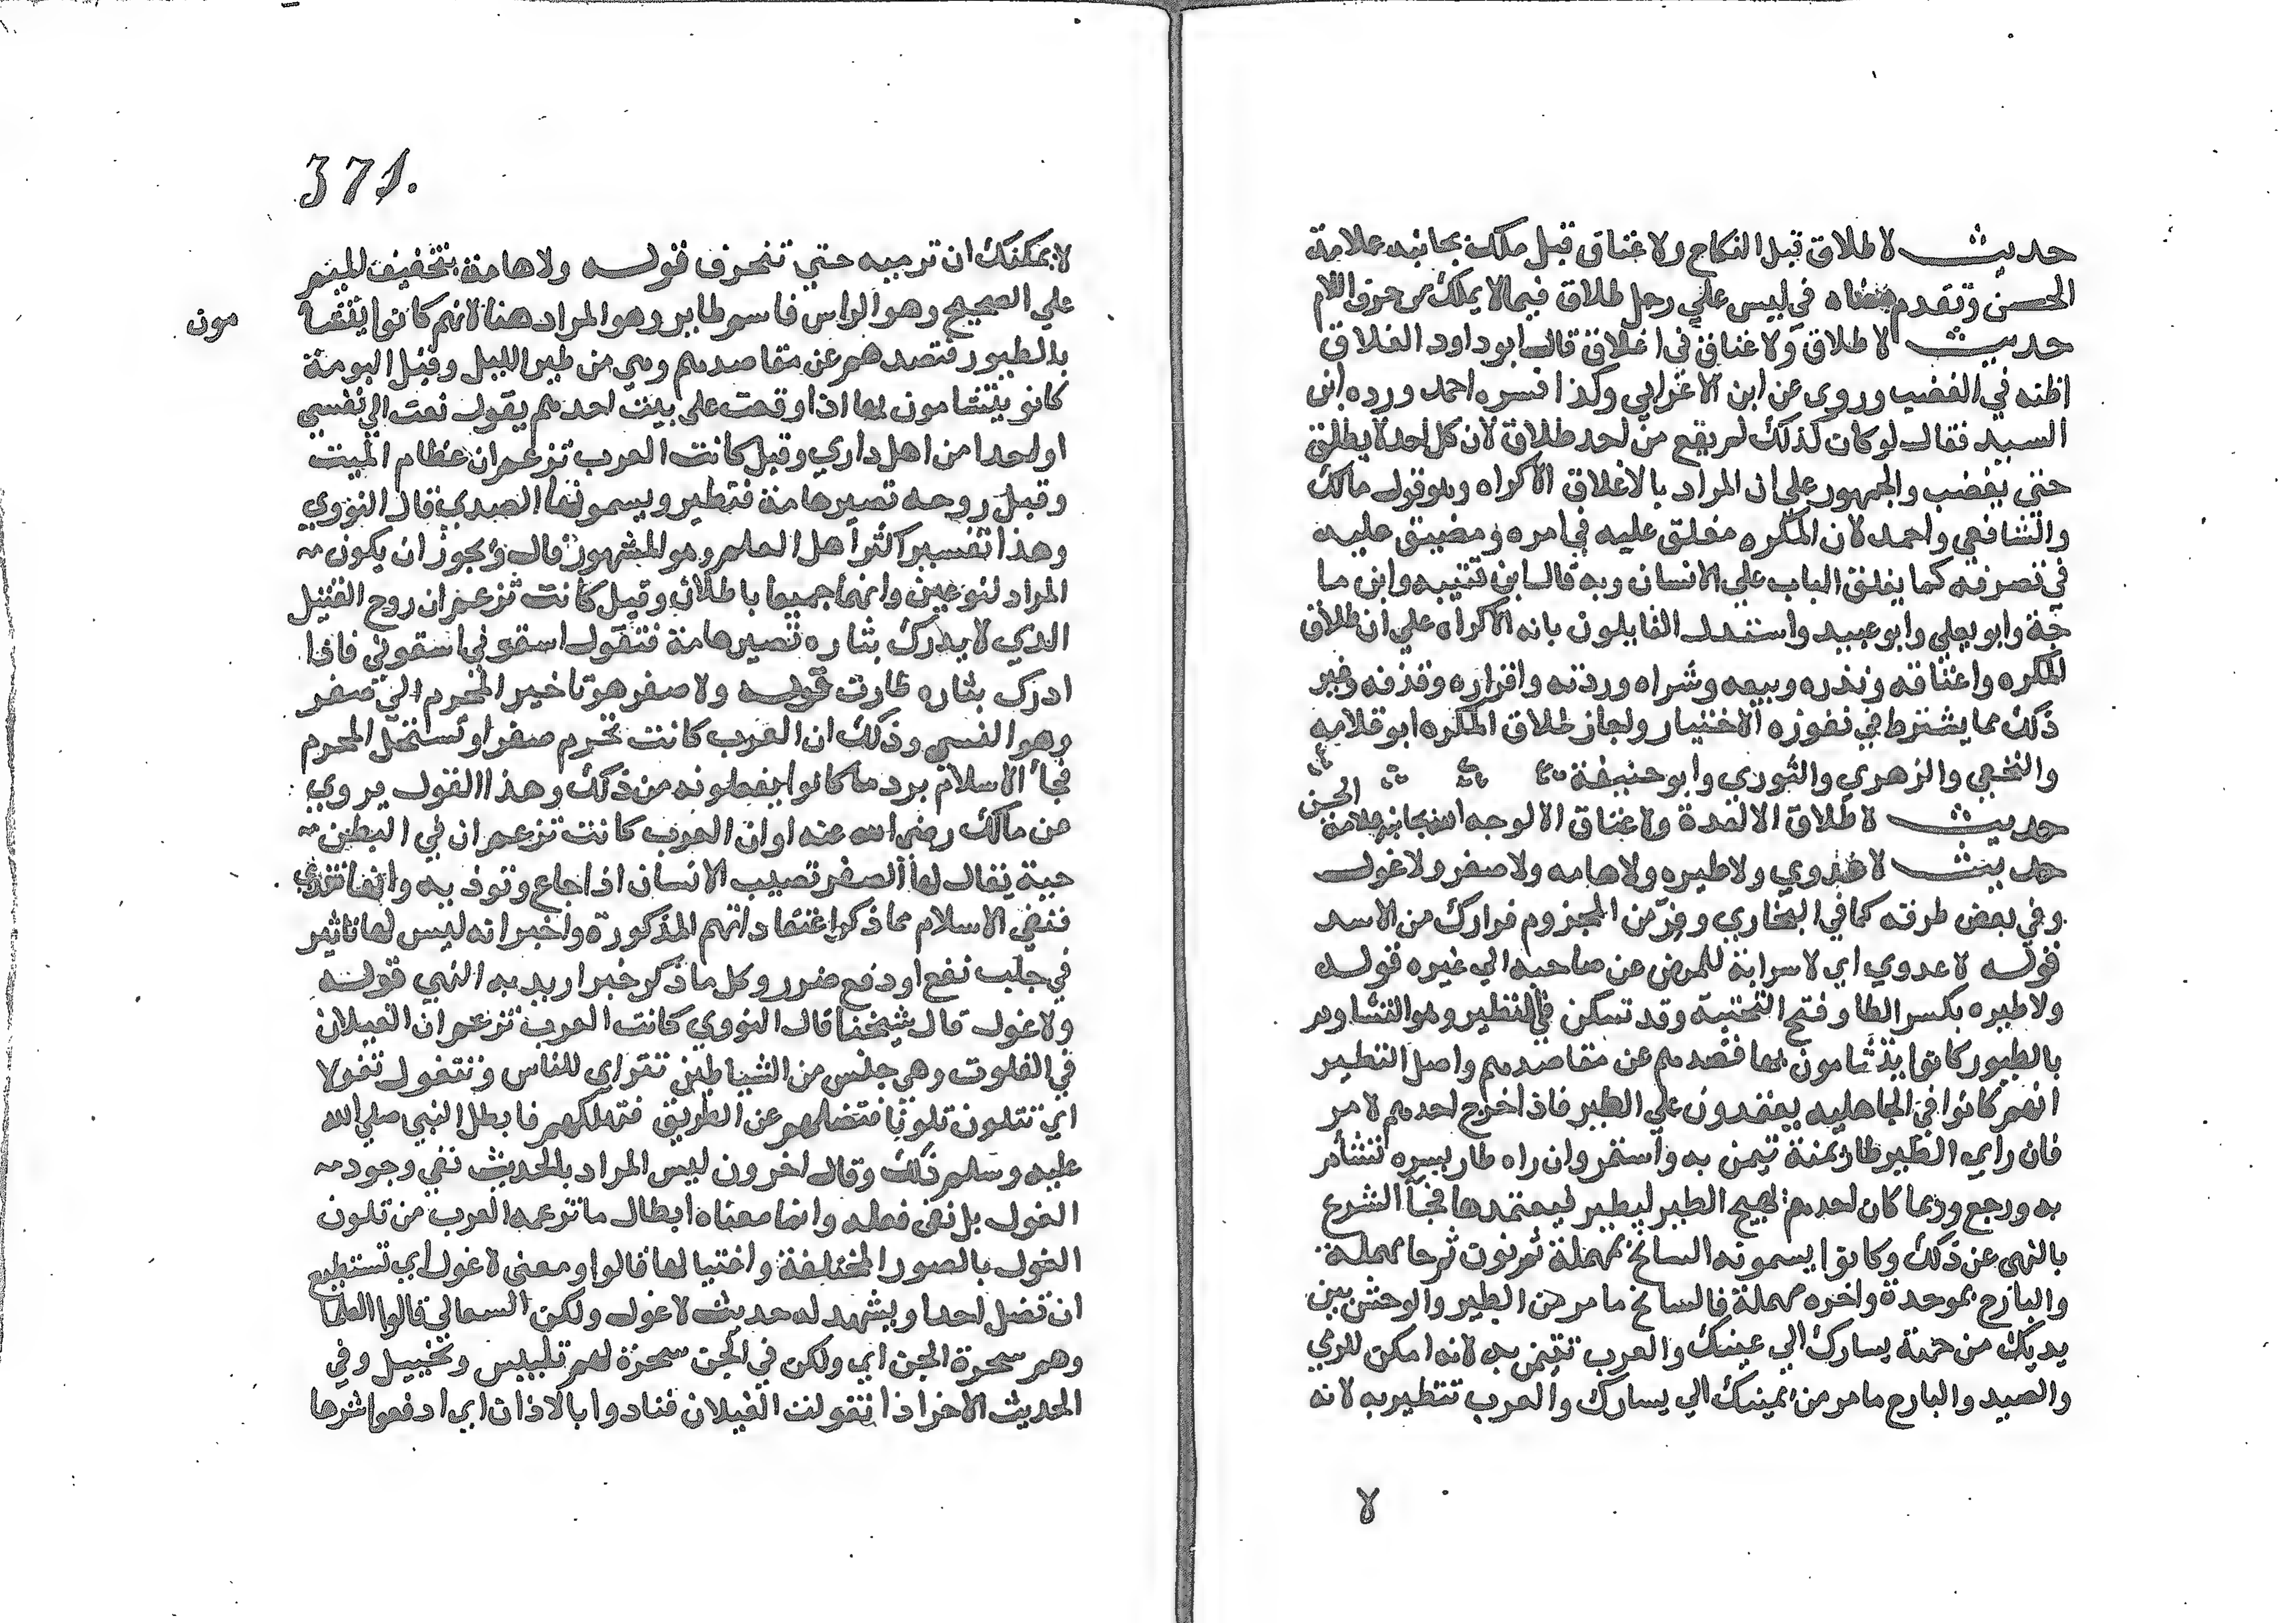 حديث لا طلاق قبل النكاح ولا عتاق قبل ملك بجانبه علامة
الحسن وتقدم معناه في ليس علي رجل طلاق فيما لا يملك من حرف اللام
حديث لا طلاق ولا عتاق في اغلاق قال ابو داود الغلاق
اظنه في الغضب وروي عن ابن الاعرابي وكذا فسره احمد ورده ابن
السيد فقال لو كان كذلك لم يقع من احد طلاق لان كل احد لا يطلق
حتي يغضب والجمهور علي ان المراد بالاغلاق الاكراه وهو قول مالك
والشافعي واحمد لان المكره مغلق عليه في امره ومضيق عليه
في تصرفه كما يغلق الباب علي الانسان وبه قال ابن قتيبه وابن ما
جة وابو يعلي وابو عبيد واستدل القايلون بانه الاكراه علي ان طلاق
المكره واعتاقه ونذره وبيعه وشراه وردته واقراره وقذفه وغير
ذلك مما يشترط في نفوزه الاختيار واجاز طلاق المكره ابو قلابه
والنخعي والزهري والثوري وابو حنيفة
حديث لا طلاق الا لعدة ولا عتاق الا لوجه الله بجانبه علامة الحسن
حديث لا عدوي ولا طيره ولا هامه ولا صفر ولا غول
وفي بعض طرقه كما في البخاري وفر من المجزوم فرارك من الاسد
قوله لا عدوي اي لا سراية للمرض عن صاحبه الي غيره قوله
ولا طيره بكسر الطا وفتح التحتية وقد تسكن في التطير وهو التشاوم
بالطيور كانوا يتشامون بها فتصدهم عن مقاصدهم واصل التطير
انهم كانوا في الجاهليه يعتمدون علي الطير فاذا خرج احدهم لامر
فان راي الطير طار يمنة تيمن به واستمر وان راه طار يسره تشأم
به ورجع وربما كان احدهم يهيج الطير ليطير فيعتمدها فجأ الشرع
بالنهي عن ذلك وكانوا يسمونه السانح بمهملة ثم نون ثم حا مهملة
والبارح بموحدة واخره مهملة فالسانح ما مر من الطير والوحش بين
يديك من جهة يسارك الي يمينك والعرب تتيمن به لانه امكن للرمي
والصيد والبارح ما مر من يمينك الي يسارك والعرب تتطير به لانه
لا
371.
لا يمكنك ان ترميه حتي تنحرف قوله ولا هامة بتخفيف الميم
علي الصحيح وهو الراس فاسم طاير وهو المراد هنا لانهم كانوا يتشا
مون
بالطيور فتصدهم عن مقاصدهم وهي من طير الليل وقيل البومة
كانو يتشامون بها اذا وقعت علي بيت احدهم يقول نعت الي نفسي
او احدا من اهل داري وقيل كانت العرب تزعم ان عظام الميت
وقيل روحه تصير هامة فتطير ويسمونها الصدي قال النووي
وهذا تفسير اكثر اهل العلم وهو المشهور قال ويجوز ان يكون
المراد لنوعين وانهما جميعا باطلان وقيل كانت تزعم ان روح القتيل
الذي لا يدرك بثاره تصير هامة فتقول اسقوني اسقوني فاذا
ادرك بثاره طارت قوله ولا صفر هو تاخير المحرم الي صفر
وهو النسي وذلك ان العرب كانت تحرم صفرا وتستحل المحرم
فجأ الاسلام برد ما كانوا يفعلونه من ذلك وهذا القول مروي
عن مالك رضي الله عنه او ان العرب كانت تزعم ان في البطن
حية يقال لها الصفر تصيب الانسان اذا جاع وتوذيه وانها تعدي
فنفي الاسلام ما ذكر اعتقاداتهم المذكورة واخبر انه ليس لها تاثير
في جلب نفع او دفع ضرر وكل ما ذكر خبر اريد به النهي قوله
ولا غول قال شيخنا قال النووي كانت العرب تزعم ان الغيلان
في الفلوت وهي جنس من الشياطين تتراي للناس وتتغول تغولا
اي تتلون تلونا فتضلهم عن الطريق فتهلكهم فابطل النبي صلي الله
عليه وسلم ذلك وقال اخرون ليس المراد بالحديث نفي وجود
الغول بل نفي فعله وانما معناه ابطال ما تزعمه العرب من تلون
الغول بالصور المختلفة واغتيالها قالوا ومعني لا غول اي تستطيع
ان تضل احدا ويشهد له حديث لا غول ولكن السعالي قالوا العلما
وهم سحرة الجن اي ولكن في الجن سحرة لهم تلبيس وتخييل وفي
الحديث الاخر اذا تغولت الغيلان فنادوا بالاذان اي ادفعوا شرها